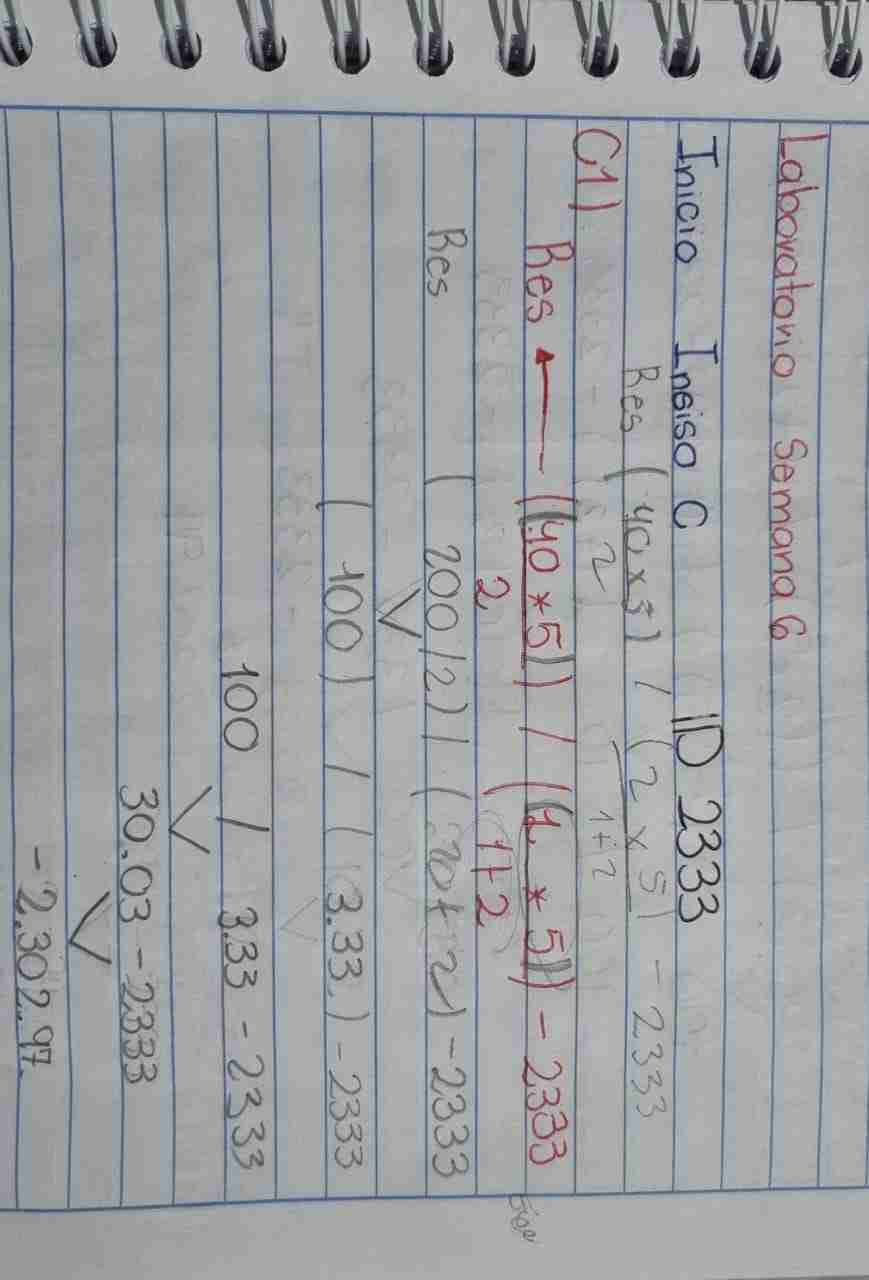 Laboratorio Semana 6
Inicio Insiso C ID 2333
Res (40x5) / (2 x 5) - 2333
2 1+2
C1)
Res ← ((40 * 5)) / ((2 * 5)) - 2333
2 1+2
Res (200/2) / ( ) - 2333
(100) / (3.33) - 2333
100 / 3.33 - 2333
30.03 - 2333
-2,302.97